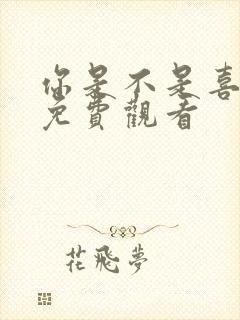 你是不是喜
免費觀看
花飛夢